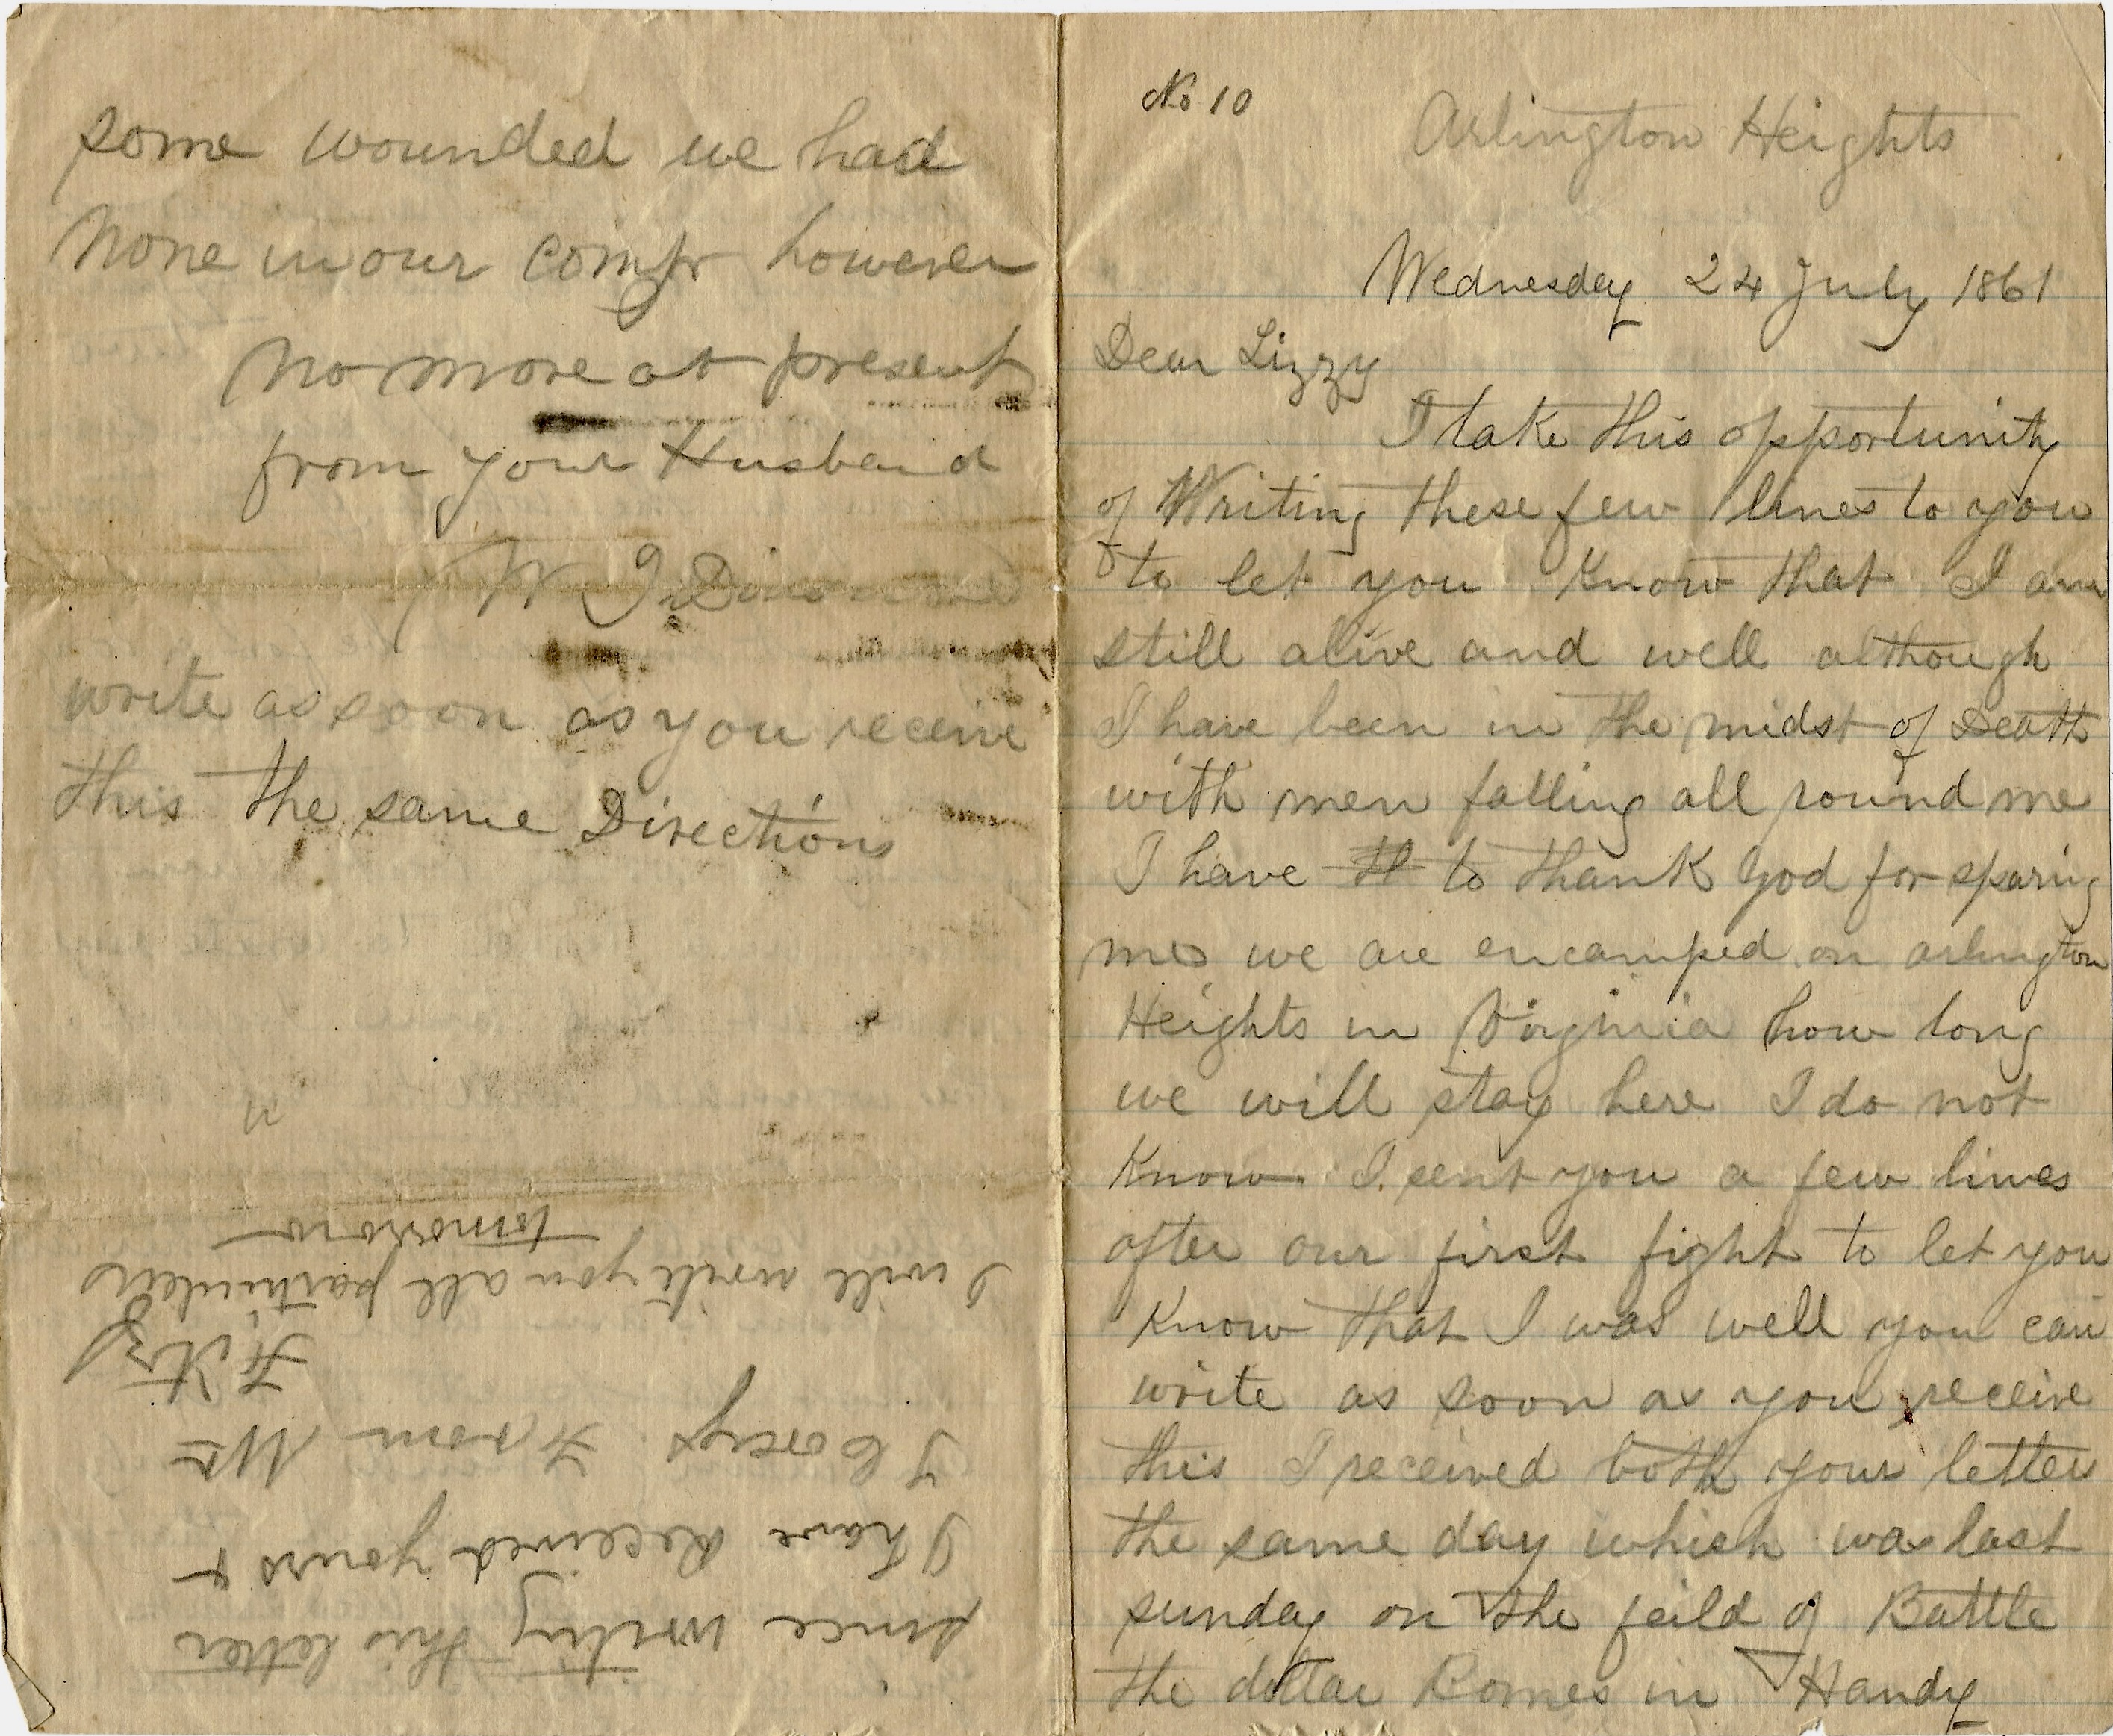 No 10
Arlington Heights
Wednesday 24 July 1861
Dear Lizzy
I take this opportunity
of Writing these few lines to you
to let you Know that I am
still alive and well although
I have been in the midst of Death
with men falling all round me
I have th to thank God for sparing
me we are encamped on arlington
Heights in Virginia how long
we will stay here I do not
Know I sent you a few lines
after our first fight to let you
Know that I was well you can
write as soon as you receive
this I received both your letters
the same day which was last
sunday on the feild of Battle
the dollar Comes in Handy
some wounded we had
None in our compy however
No more at present
from your Husband
W J
write as soon as you receive
this the same Directions
since writing this letter
I have Received yours &
J Coreys From Mr
I will write you all particulars
tomorrow